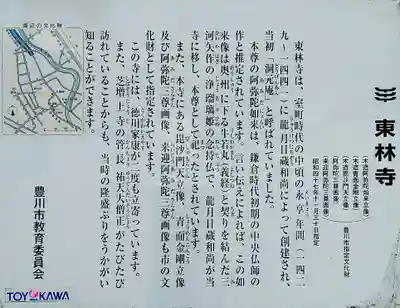 東林寺
豊川市指定文化財
(木造阿弥陀如来立像)
(木造青面金剛立像)
(木造毘沙門天立像)
(阿弥陀三尊画像)
(来迎阿弥陀三尊画像)
昭和四十七年十一月三十日指定
東林寺は、室町時代の中頃の永享年間(一四二
九~一四四一)に龍月目蔵和尚によって創建され、
当初「洞元庵」と呼ばれていました。
本尊の阿弥陀如来は、鎌倉時代初期の中央仏師の
作と推定されています。言い伝えによれば、この如
来像は奥州に下る牛若丸(義経)と契りを結んだ三
河矢作の浄瑠璃姫の念持仏で、龍月目蔵和尚が当
寺に移し、本尊として祀ったとされています。
また、本寺にある毘沙門天立像、青面金剛立像
及び阿弥陀三尊画像、来迎阿弥陀三尊画像も市の文
化財として指定されています。
この寺には、徳川家康が二度も立寄っています。
また、芝増上寺の管長祐天大僧正がたびたび
訪れていることからも、当時の隆盛ぶりをうかがい
知ることができます。
豊川市教育委員会
周辺の文化財
TOYOKAWA